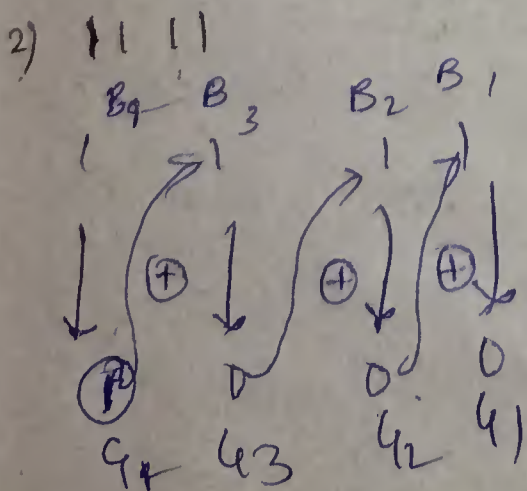 2) 1 1 1 1
B4 B3 B2 B1
1 1 1 1
⊕ ⊕ ⊕
0 0 0
G4 G3 G2 G1